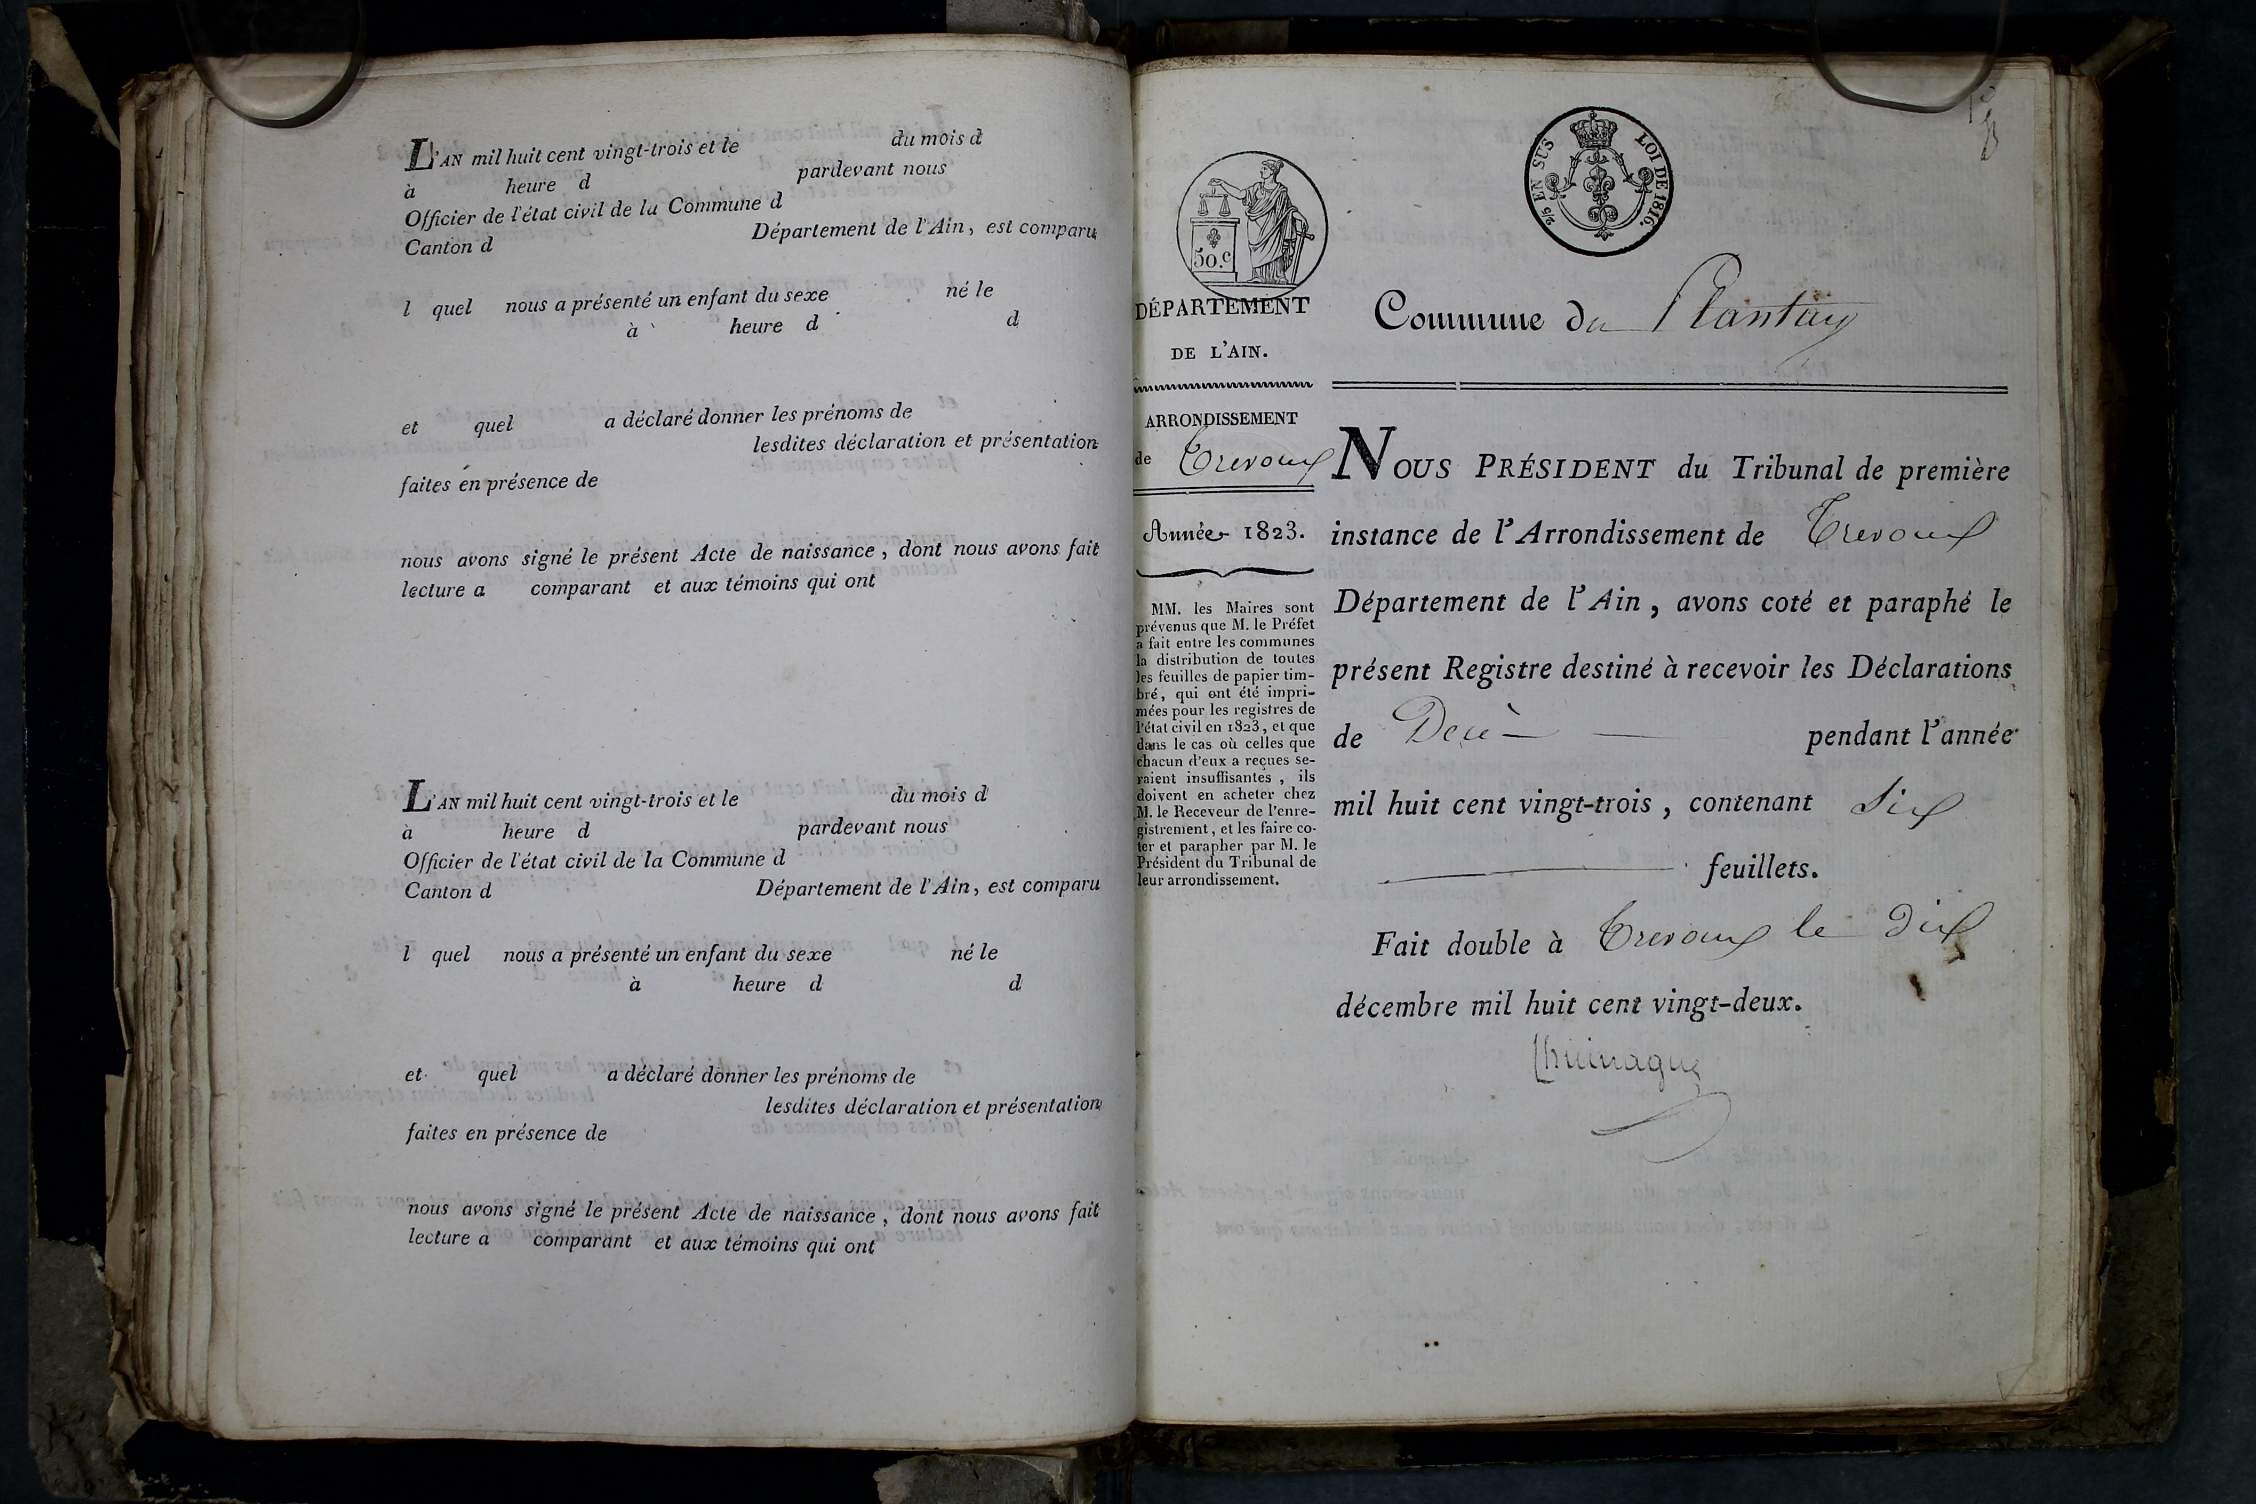 L'AN mil huit cent vingt-trois et le du mois d
à heure d pardevant nous
Officier de l'état civil de la Commune d
Canton d Département de l'Ain, est comparu
l quel nous a présenté un enfant du sexe né le
à heure d d
et quel a déclaré donner les prénoms de
lesdites déclaration et présentation
faites en présence de
nous avons signé le présent Acte de naissance, dont nous avons fait
lecture a comparant et aux témoins qui ont
L'AN mil huit cent vingt-trois et le du mois d
à heure d pardevant nous
Officier de l'état civil de la Commune d
Canton d Département de l'Ain, est comparu
l quel nous a présenté un enfant du sexe né le
à heure d d
et quel a déclaré donner les prénoms de
lesdites déclaration et présentation
faites en présence de
nous avons signé le présent Acte de naissance, dont nous avons fait
lecture a comparant et aux témoins qui ont
50.c
2/5 EN SUS LOI DE 1816.
DÉPARTEMENT
DE L'AIN.
ARRONDISSEMENT
de Trevoux
Année 1823.
MM. les Maires sont
prévenus que M. le Préfet
a fait entre les communes
la distribution de toutes
les feuilles de papier tim-
bré, qui ont été impri-
mées pour les registres de
l'état civil en 1823, et que
dans le cas où celles que
chacun d'eux a reçues se-
raient insuffisantes, ils
doivent en acheter chez
M. le Receveur de l'enre-
gistrement, et les faire co-
ter et parapher par M. le
Président du Tribunal de
leur arrondissement.
Commune du Plantay
NOUS PRÉSIDENT du Tribunal de première
instance de l'Arrondissement de Trevoux
Département de l'Ain, avons coté et paraphé le
présent Registre destiné à recevoir les Déclarations
de Decès pendant l'année
mil huit cent vingt-trois, contenant Six
feuillets.
Fait double à Trevoux le dix
décembre mil huit cent vingt-deux.